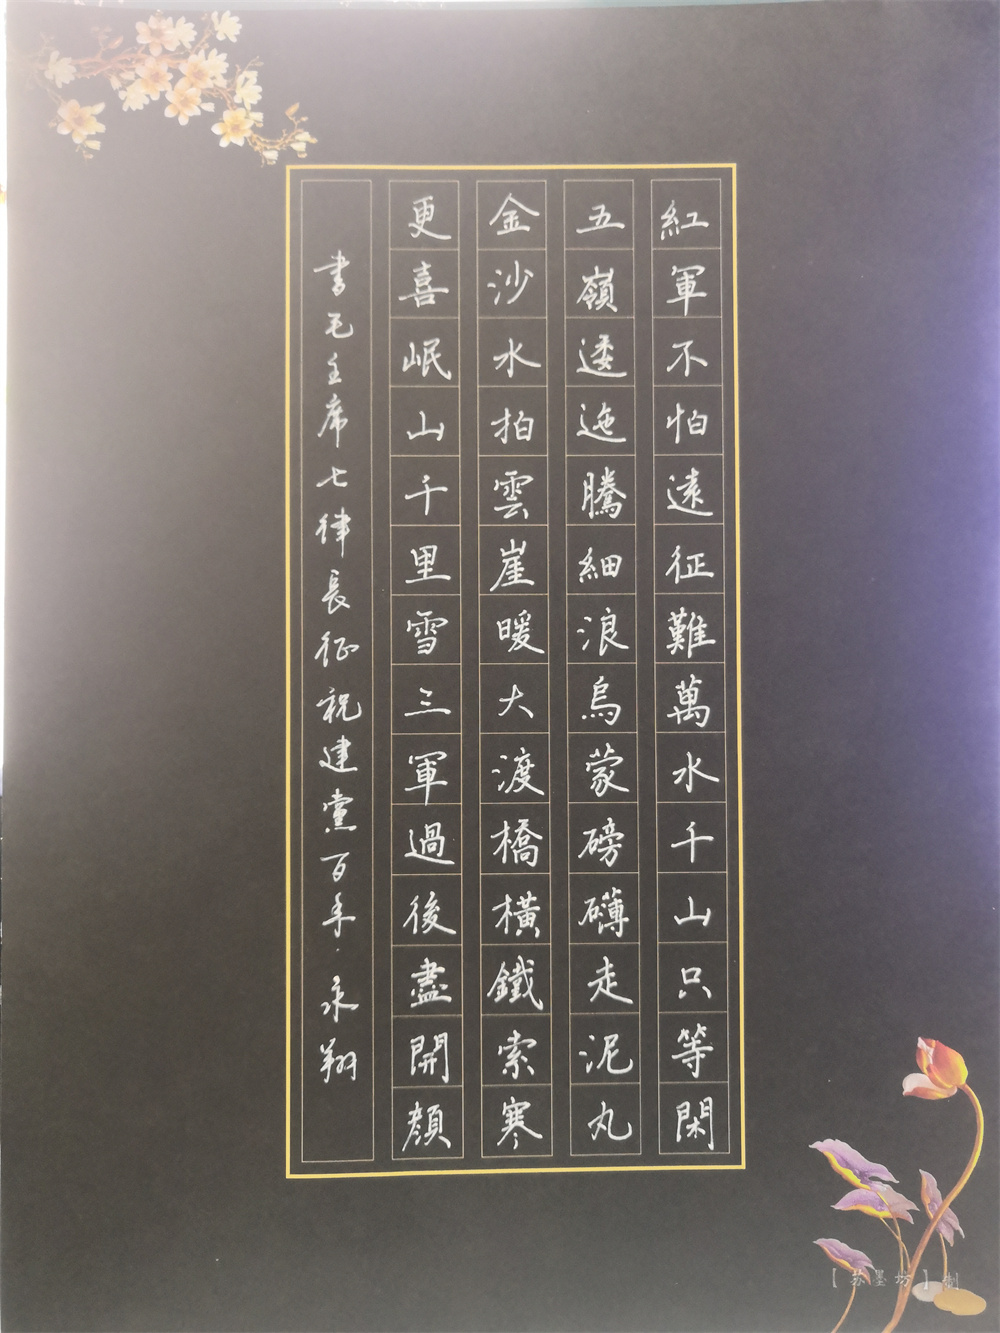 紅軍不怕遠征難萬水千山只等閑
五嶺逶迤騰細浪烏蒙磅礴走泥丸
金沙水拍雲崖暖大渡橋橫鐵索寒
更喜岷山千里雪三軍過後盡開顏
書毛主席七律長征祝建黨百年·永翔
【苏墨坊】制